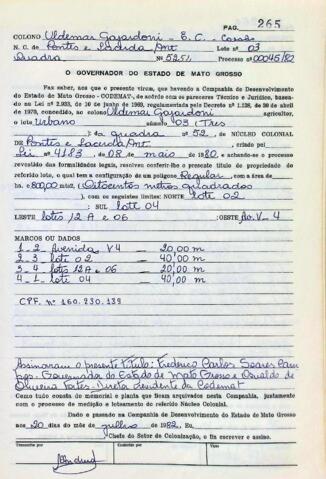 PAG. 265
COLONO Uldemar Gajardoni - E. C. - Casas
N. C. de Pontes e Lacerda Ant Lote nº 03
Quadra Nº 5251 Processo nº 00045/80
O GOVERNADOR DO ESTADO DE MATO GROSSO
Faz saber, aos que o presente virem, que havendo a Companhia de Desenvolvimento
do Estado de Mato Grosso - CODEMAT-, de acôrdo com os pareceres Técnico e Jurídico, baseado
na Lei nº 2.933, de 10 de junho de 1969, regulamentada pelo Decreto nº 1.138, de 20 de abril
de 1970, concedido, ao colono Uldemar Gajardoni agricultor,
o lote urbano número 03. Tres
); da quadra nº 52, DE NÚCLEO COLONIAL
DE Pontes e Lacerda Ant, criado por
Lei 4183 de 08 de maio de 1980, e achando-se o processo
revestido das formalidades legais, resolveu conferir-lhe o presente título de propriedade do
referido lote, o qual tem a configuração de um polígono Regular, com a área de
ha 800,00 mts2, ( Oitocentos metros quadrados
), com os seguintes limites: NORTE lote 02
; SUL lote 04
LESTE lotes 12 A e 06 ; OESTE Av. V-4
MARCOS OU DADOS
1 - 2 Avenida V4 — 20,00 m
2 - 3 lote 02 — 40,00 m
3 - 4 lotes 12A e 06 — 20,00 m
4 - 1 lote 04 — 40,00 m
CPF. nº 160.230.139
Assinaram o presente título: Frederico Carlos Soares Cam
pos - Governador do Estado de Mato Grosso e Osvaldo de
Oliveira Fortes - Diretor Presidente da Codemat
Como tudo consta do memorial e planta que ficam arquivados nesta Companhia, juntamente
com o processo de medição e loteamento do referido Núcleo Colonial.
Dado e passado na Companhia de Desenvolvimento do Estado de Mato Grosso
aos 20 dias do mês de julho de 1982, Eu,
Chefe do Setor de Colonização, o fiz escrever e assino.
Transcrito por
Conferido por
Visto